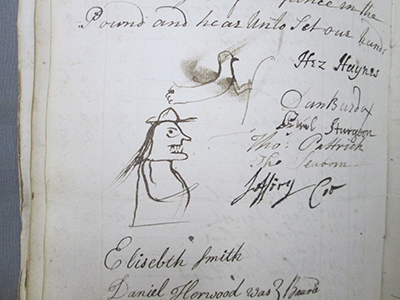 Pound and hear Unto Set our hands
Hez Haynes
Dan Burdox
Sturgeon
Tho: Pattrick
Tho Seaborn
Jeffiry Coo
Elisebth Smith
Daniel Horwood was